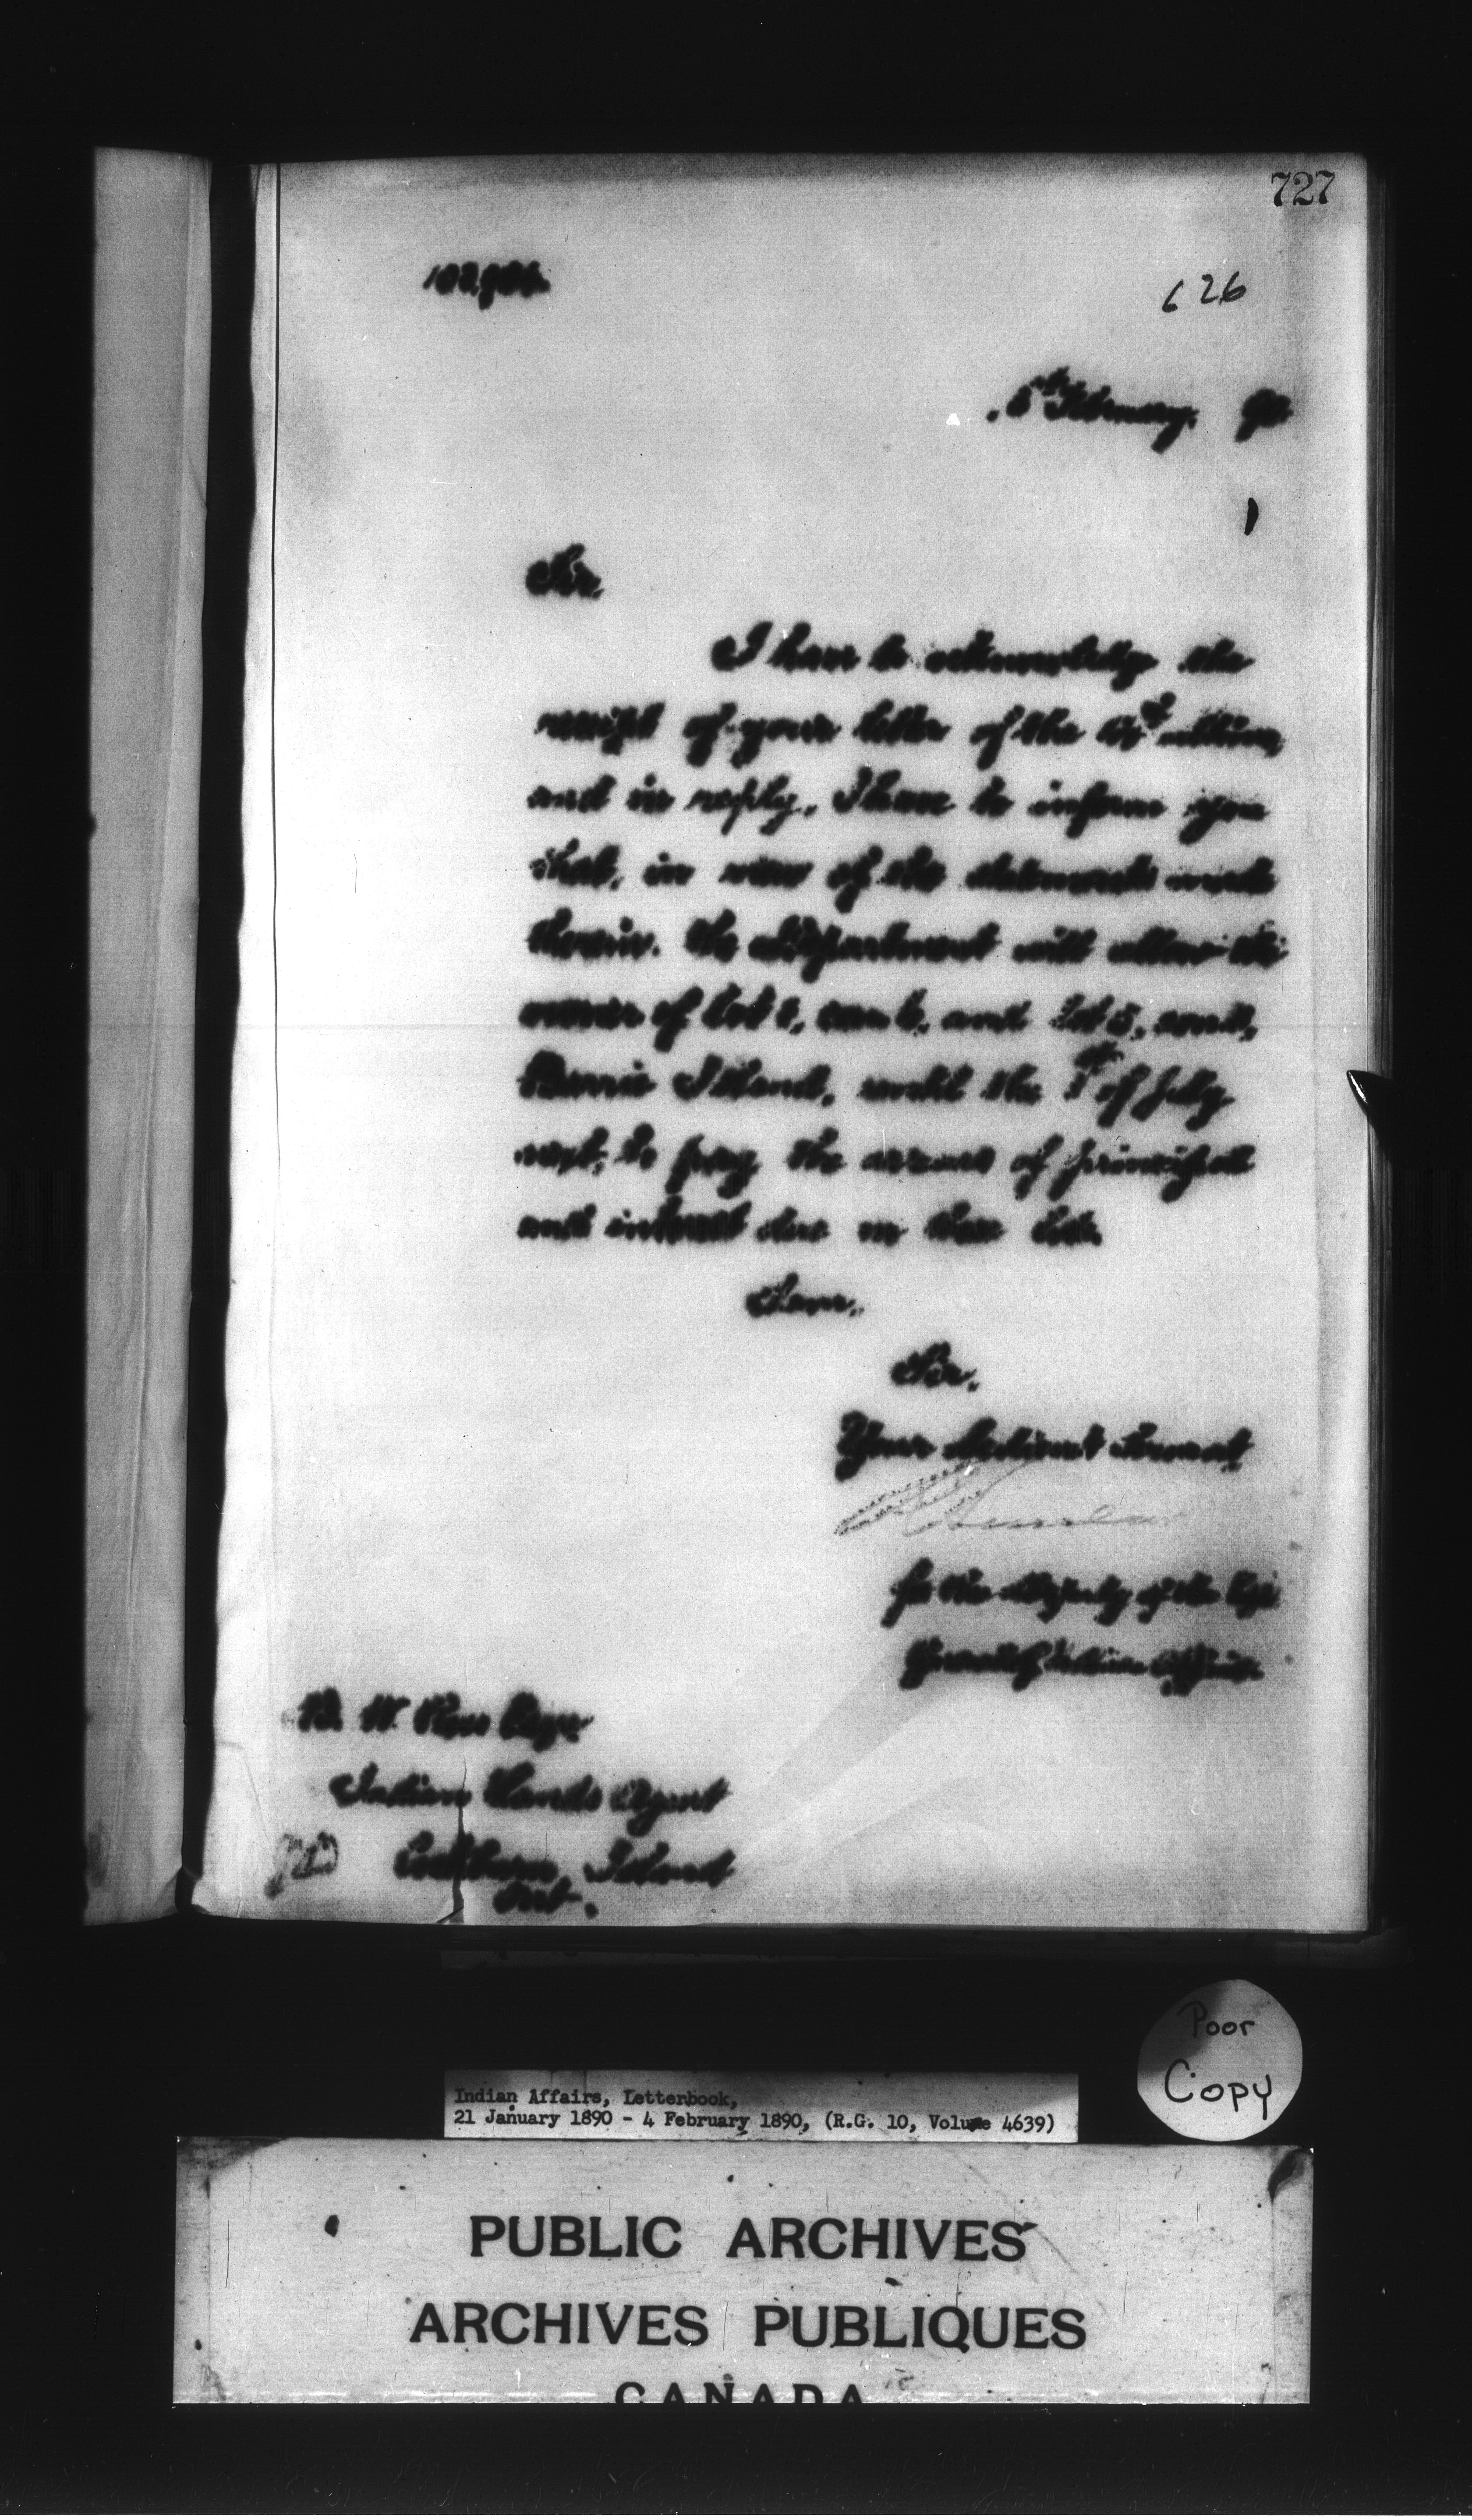 727
626
5th February, 90
Sir,
I have to acknowledge the
receipt of your letter of the ultimo,
and in reply, I have to inform you
that, in view of the statements made
therein, the Department will allow the
owner of Lot con 6, and Lot 5,
Barrie Island, until the 1st of July
next, to pay the arrears of principal
and interest due on these lots.
I am,
Sir,
Your obedient servant,
for the Deputy of the Supt.
General of Indian Affairs
B. W. Ross Esqre
Indian Lands Agent
Cockburn Island
Ont.
Poor
Copy
Indian Affairs, Letterbook,
21 January 1890 - 4 February 1890, (R.G. 10, Volume 4639)
PUBLIC ARCHIVES
ARCHIVES PUBLIQUES
CANADA